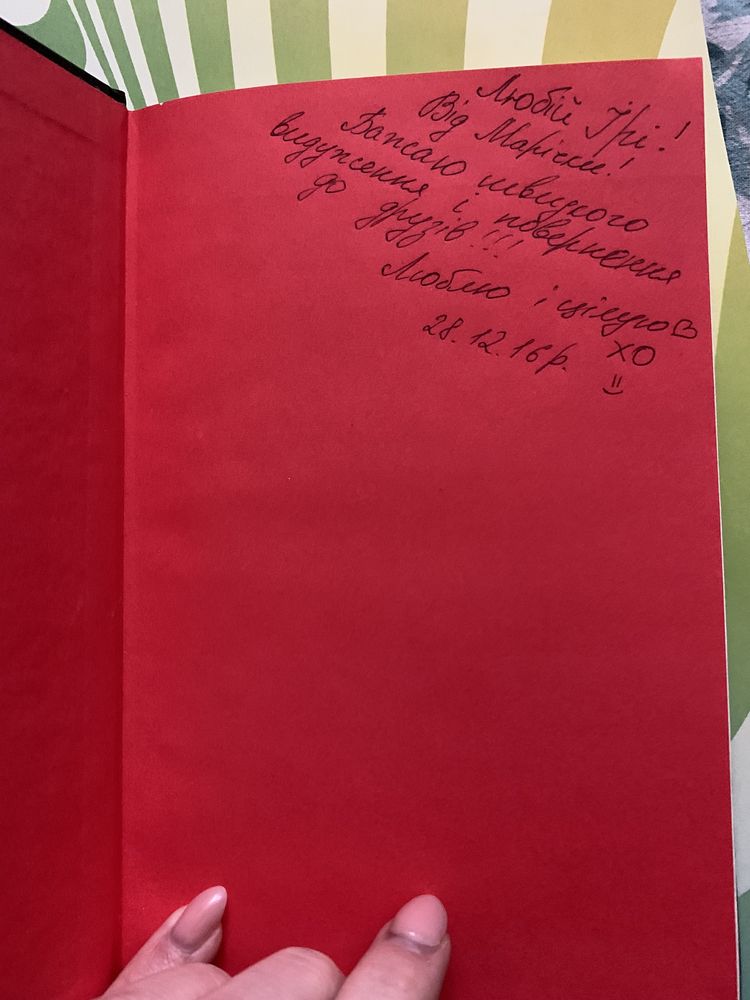 Любій Ірі!
Від Марієчи!
Бажаю швидкого
видужження і повернення
до друзів!!!
Люблю і цілую♡
28.12.16р. XO